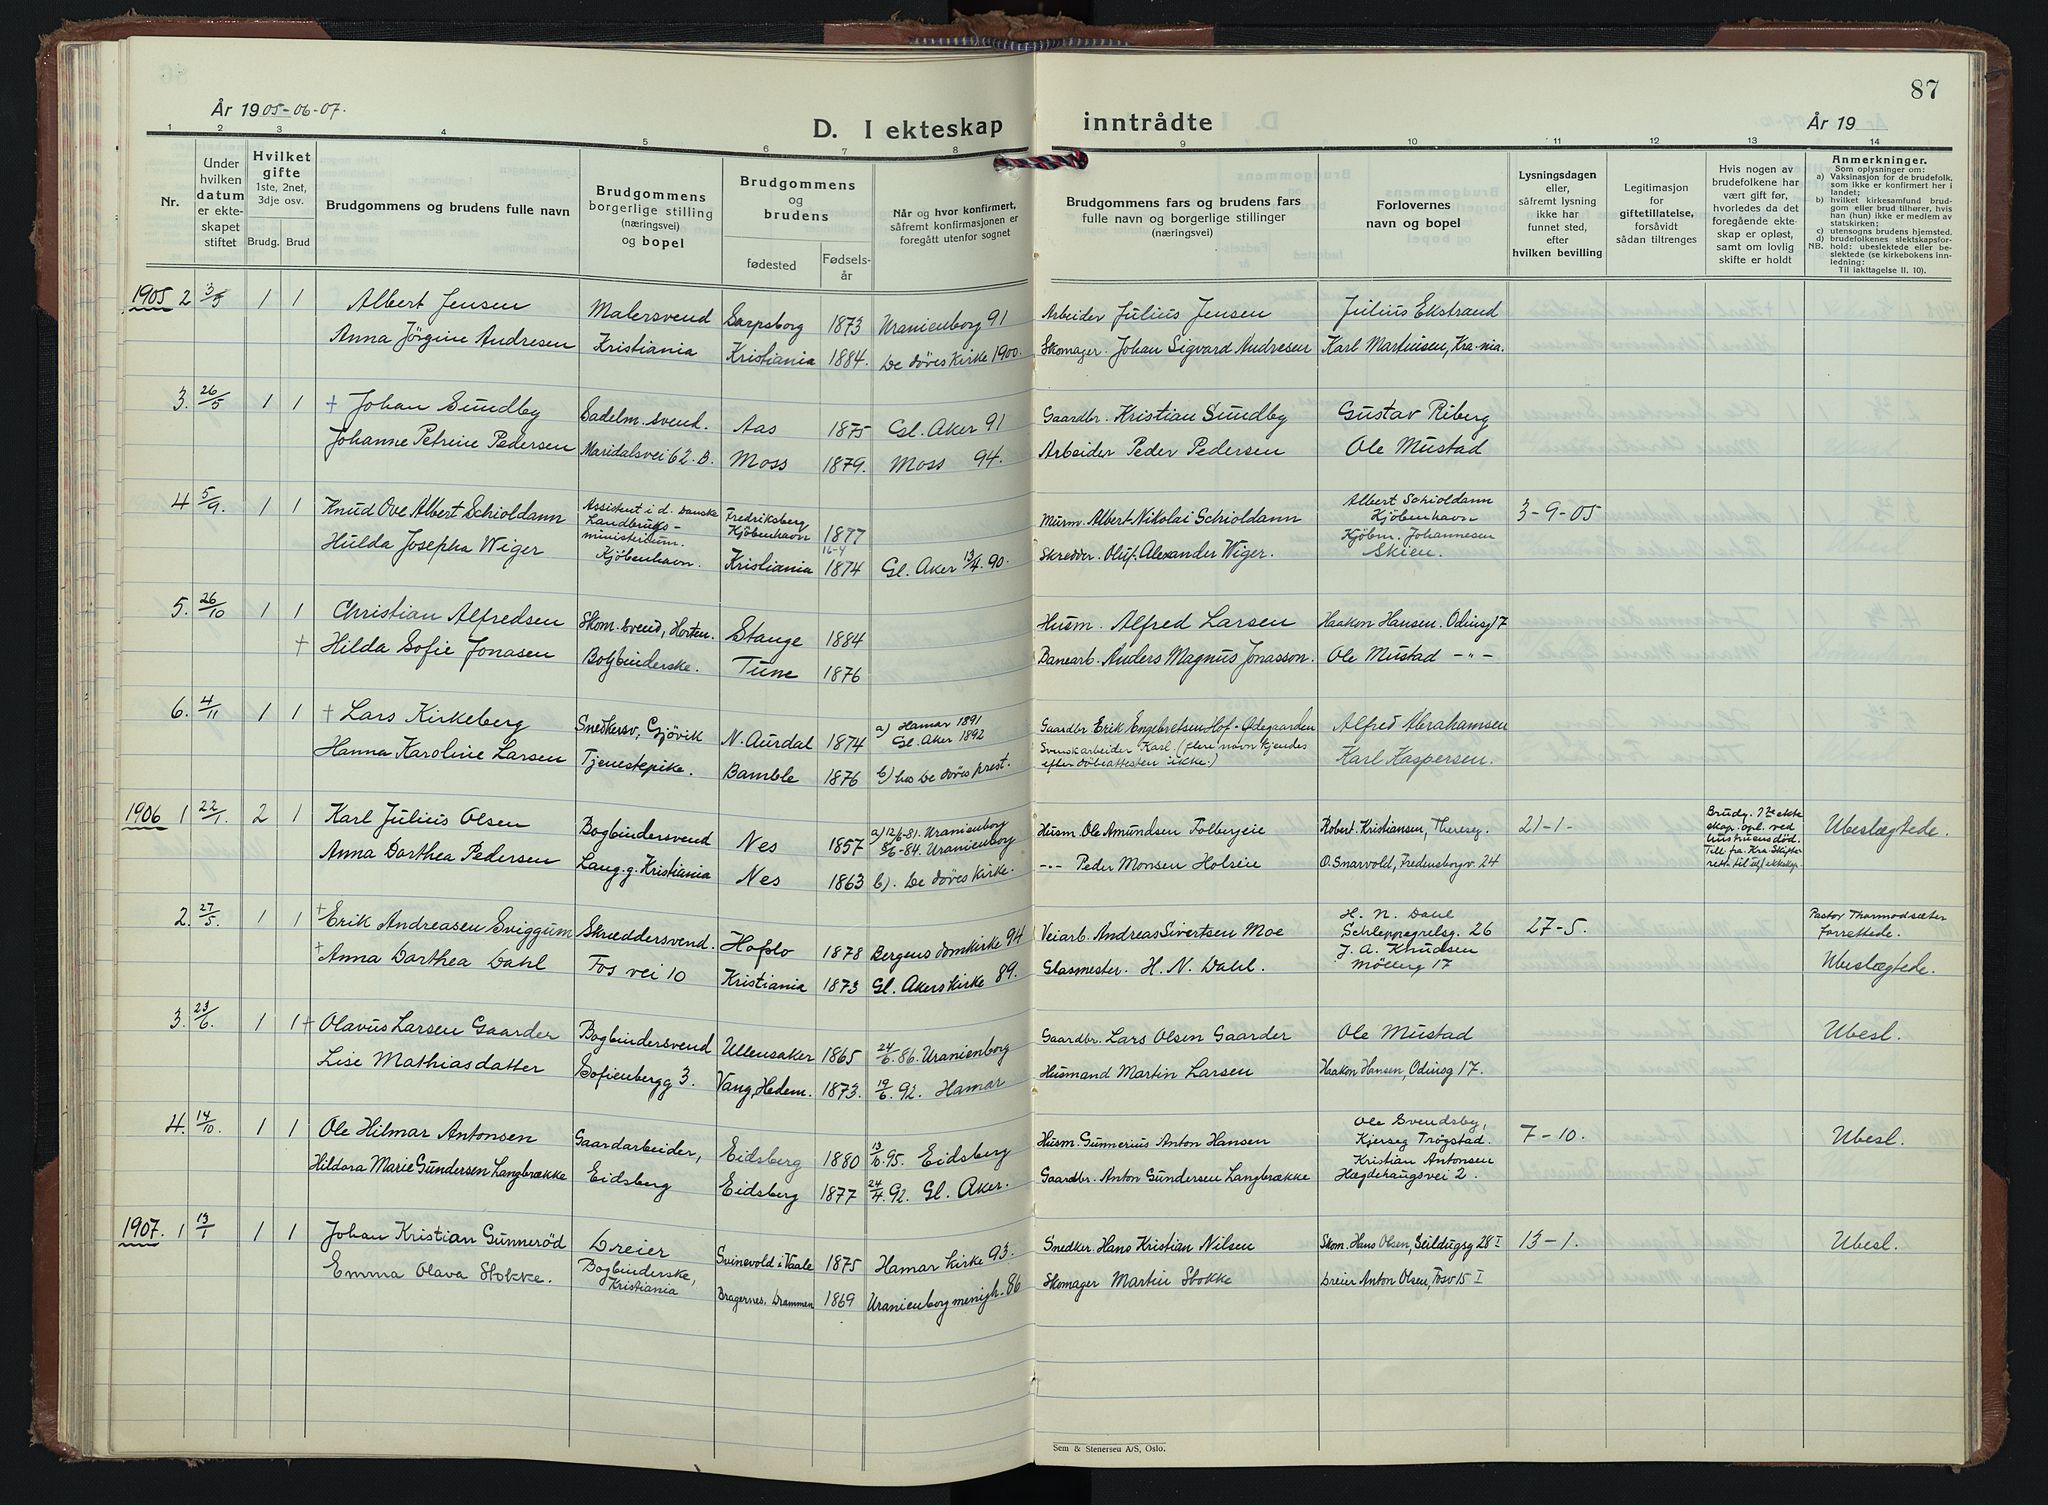 87
År 1905-06-07.
D. I ekteskap inntrådte
År 19
1 2 3 4 5 6 7 8 9 10 11 12 13 14
Nr.
Under hvilken datum er ekteskapet stiftet
Hvilket gifte 1ste, 2net, 3dje osv.
Brudg. Brud
Brudgommens og brudens fulle navn
Brudgommens borgerlige stilling (næringsvei) og bopel
Brudgommens og brudens
fødested Fødselsår
Når og hvor konfirmert, såfremt konfirmasjonen er foregått utenfor sognet
Brudgommens fars og brudens fars fulle navn og borgerlige stillinger (næringsvei)
Forlovernes navn og bopel
Lysningsdagen eller, såfremt lysning ikke har funnet sted, efter hvilken bevilling
Legitimasjon for giftetillatelse, forsåvidt sådan tiltrenges
Hvis nogen av brudefolkene har vært gift før, hvorledes da det foregående ekteskap er opløst, samt om lovlig skifte er holdt
Anmerkninger.
Som oplysninger om:
a) Vaksinasjon for de brudefolk, som ikke er konfirmert her i landet;
b) hvilket kirkesamfund brudgom eller brud tilhører, hvis han (hun) ikke er medlem av statskirken;
c) utensogns brudens hjemsted.
d) brudefolkenes slektskapsforhold: ubeslektede eller beslektede (se kirkebokens innledning:
NB. Til iakttagelse II. 10).
1905 2 3/5 1 1 Albert Jensen Malersvend Sarpsborg 1873 Uranienborg 91 Arbeider Julius Jensen Julius Ekstrand
Anna Jörgine Andresen Kristiania Kristiania 1884. De döves Kirke 1900. Skomager. Johan Sigvard Andresen Karl Martinsen, Kra-nia.
3. 26/5 1 1 + Johan Sundby Sadelm. svend. Aas 1875 Gl. Aker 91 Gaardbr. Kristian Sundby Gustav Riberg
Johanne Petrine Pedersen Maridalsvei 62. B. Moss 1879. Moss 94. Arbeider Peder Pedersen Ole Mustad
4 5/9. 1 1 Knud Ove Albert Schioldann Assistent i d. Danske Landbrugs-ministerium. Kjöbenhavn. Fredriksberg Kjöbenhavn 1877 Murm. Albert Nikolai Schioldann Albert Schioldann Kjöbenhavn 3-9-05
Hulda Josepha Wiger Kristiania 16-4 1874 Gl. Aker 13/4. 90. Skredder. Oluf Alexander Wiger. Kjöbm. Johannesen Skien.
5. 26/10 1 1 Christian Alfredsen Skom. svend, Horten. Stange 1884 Husm. Alfred Larsen Haakon Hansen. Odinsg 17
+ Hilda Sofie Jonasen Bogbinderske. Tune 1876 Banearb. Anders Magnus Jonasson. Ole Mustad -"-
6. 4/11 1 1 + Lars Kirkeberg Snedkersv, Gjövik N. Aurdal 1874 a) Hamar 1891 Gl. Aker 1892 Gaardbr Erik Engebretsen Hof-Ødegaarden Alfred Abrahamsen
Hanna Karoline Larsen Tjenestepike. Bamble 1876 b) hos De döves prest. Svensk arbeider Karl. (flere navn kjendes efter döbeattesten ikke.) Karl Kaspersen.
1906 1 22/1. 2 1 Karl Julius Olsen Bogbindersvend Nes 1857 a) 12/6-81. Uranienborg Husm. Ole Amundsen Tolbergeie Robert Kristiansen, Theresesg. 21-1- Brudg. 1ste ekteskap. opl. ved hustruens död. Till. fra Kra Skifterett til nyt ekteskap Ubeslægtede.
Anna Dorthea Pedersen Lang.g. Kristiania Nes 1863 8/6-84. Uranienborg b). De döves kirke. -"- Peder Monsen Holseie O. Snarvold, Fredensborgv. 24
2. 27/5. 1 1 + Erik Andreasen Sviggum Skræddersvend. Hafslo 1878 Bergens domkirke 94 Veiarb. Andreas Sivertsen Moe H. N. Dahl Schleppegrelsg. 26 27-5. Pastor Thormodsæter forrettede.
+ Anna Dorthea Dahl Fos vei 10 Kristiania 1873 Gl. Akers Kirke 89. Glasmester. H. N. Dahl. J. A. Knudsen Möllerg 17 Ubeslægtede.
3. 23/6. 1 1 + Olavus Larsen Gaarder Bogbindersvend Ullensaker 1865 24/6. 86. Uranienborg Gaardbr. Lars Olsen Gaarder Ole Mustad Ubesl.
Lise Mathiasdatter Sofienbergg 3. Vang, Hedem. 1873. 19/6. 92. Hamar Husmand Martin Larsen Haakon Hansen, Odinsg 17.
4. 14/10. 1 1 Ole Hilmar Antonsen Gaardarbeider, Eidsberg 1880 13/6. 95. Eidsberg Husm. Gunnerius Anton Hansen Ole Svendsby, Kjerseg Trögstad. 7-10. Ubesl.
Hildora Marie Gundersen Langbrække Eidsberg Eidsberg 1877 24/4. 92. Gl. Aker. Gaardbr. Anton Gundersen Langbrække Kristian Antonsen Hægdehaugsvei 2.
1907. 1 13/1 1 1 Johan Kristian Gunneröd Dreier Svinevold i Vaale 1875 Hamar Kirke 93. Snedker. Hans Kristian Nilsen Skom. Hans Olsen, Seildugsg 28 I 13-1. Ubesl.
Emma Olava Stokke. Bogbinderske, Kristiania Bragernes. Drammen 1869 Uranienborg menigh. 86 Skomager Martin Stokke Dreier Anton Olsen, Fosv 15 I
Sem & Stenersen A/S, Oslo.